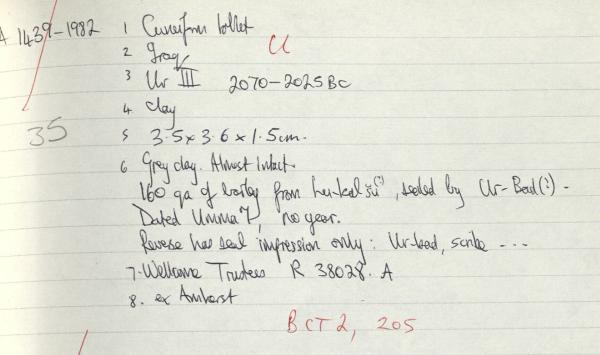 A 1439-1982 1 Cuneiform tablet
U
2 Iraq
3 Ur III 2070-2025 BC
4 Clay
35
5 3.5 x 3.6 x 1.5 cm.
6 Grey clay. Almost intact.
160 qa of barley from , sealed by Ur- (?) -
Dated Umma 7, no year.
Reverse has seal impression only: , scribe ---
7. Wellcome Trustees R 38028. A
8. ex Amherst
BCT 2, 205